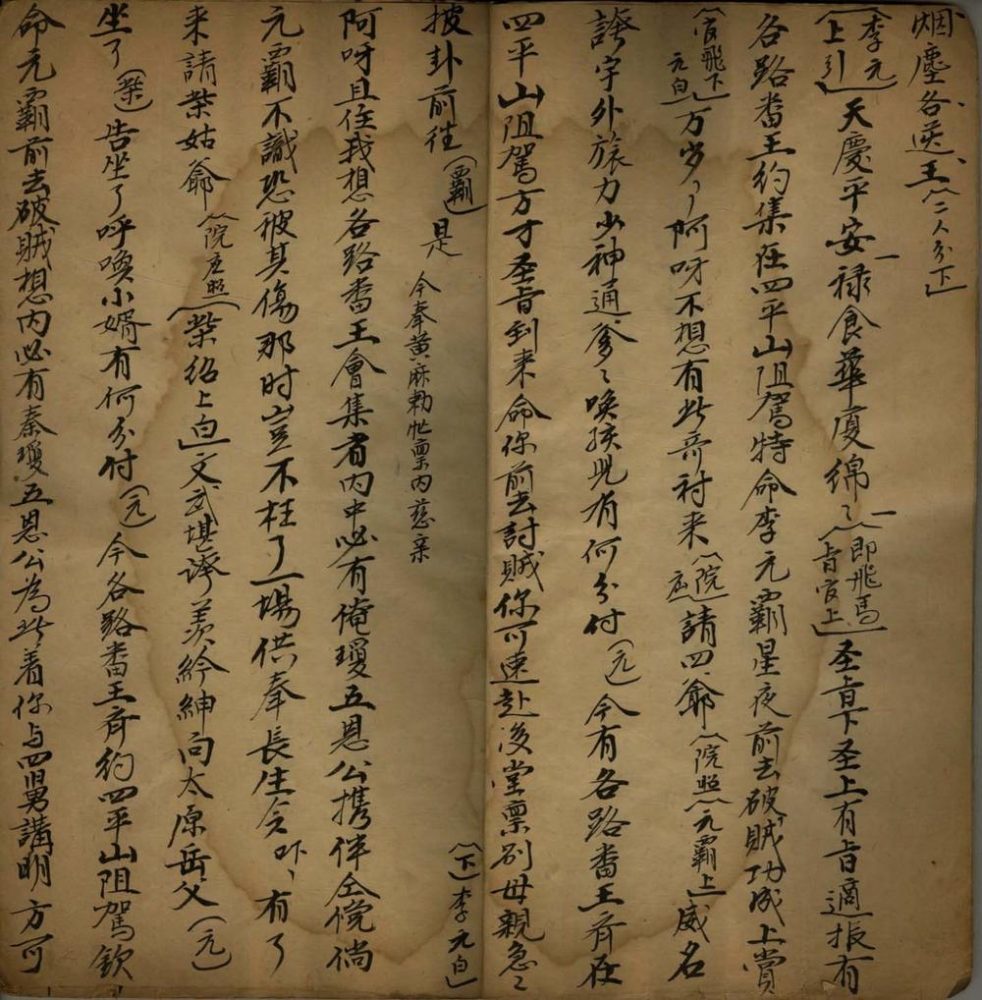 烟塵各送王（二人分下）
（李元上引）天慶平安祿食華厦綿〻（即飛馬旨官上）圣旨下圣上有旨適报有
各路畨王約集在四平山阻駕特命李元霸星夜前去破賊功成上賞
（官飛下元白）万岁〻阿呀不想有此奇村来（院应）請四爺（院照）（元霸上）威名
誇宇外旅力少神通爹〻唤孩児有何分付（元）今有各路畨王齐在
四平山阻駕方才圣旨到来命你前去討賊你可速赴後堂禀别母親急〻
披卦前往（霸）是今奉黄麻勅忙禀内慈亲（下）（李元白）
阿呀且住我想各路畨王會集者内中必有俺瓊五恩公携伴仝傥倘
元霸不識恐被其傷那时豈不枉了一塲供奉長生今吓、有了
来請柴姑爺（院应照）（柴绍上白）文武堪誇羡紟紳向太原岳父（元）
坐了（柴）告坐了呼喚小婿有何分付（元）今各路畨王齐约四平山阻駕欽
命元霸前去破贼想内必有秦瓊五恩公為此着你与四舅講明方可